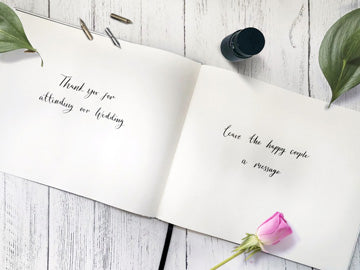 Thank you for
attending our wedding
leave the happy couple
a message